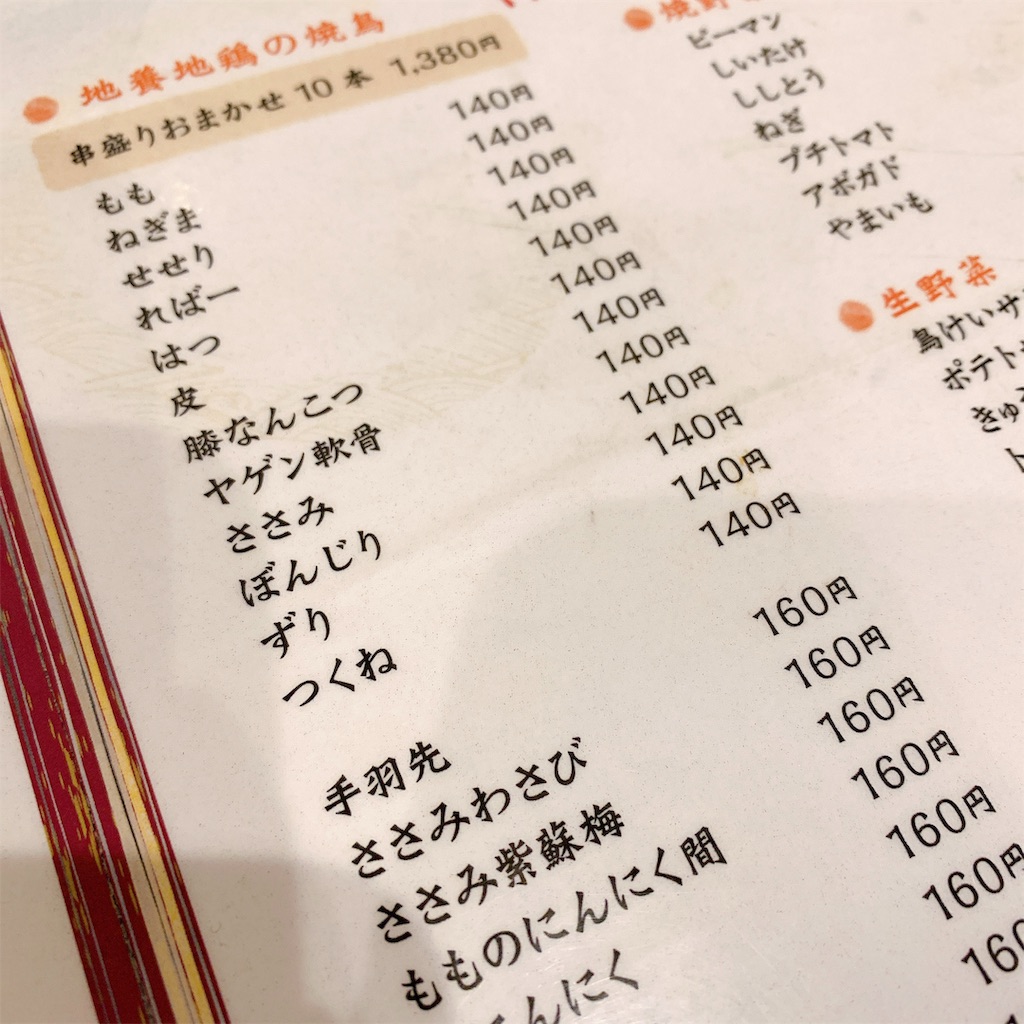 地養地鶏の焼鳥
串盛りおまかせ10本 1,380円
もも 140円
ねぎま 140円
せせり 140円
ればー 140円
はつ 140円
皮 140円
膝なんこつ 140円
ヤゲン軟骨 140円
ささみ 140円
ぼんじり 140円
ずり 140円
つくね 140円
手羽先 160円
ささみわさび 160円
ささみ紫蘇梅 160円
もものにんにく間 160円
んにく 160円
160円
160
焼野
ピーマン
しいたけ
ししとう
ねぎ
プチトマト
アボガド
やまいも
生野菜
鳥けいサ
ポテト
きゅう
ト